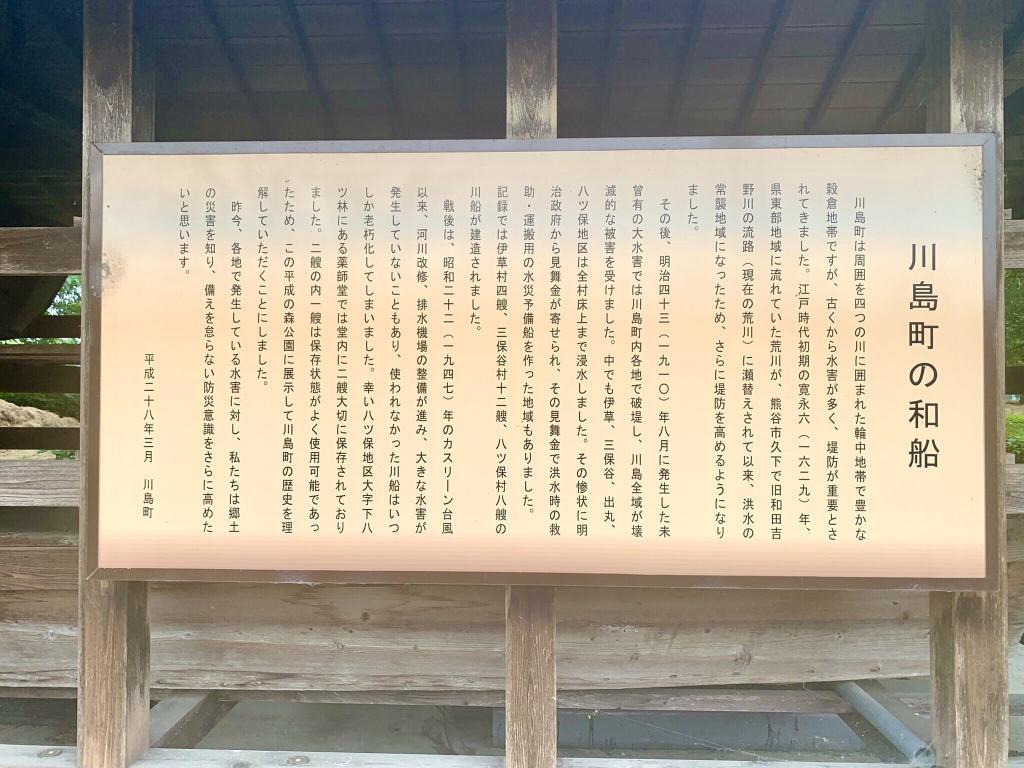 川島町の和船
川島町は周囲を四つの川に囲まれた輪中地帯で豊かな
穀倉地帯ですが、古くから水害が多く、堤防が重要とさ
れてきました。江戸時代初期の寛永六（一六二九）年、
県東部地域に流れていた荒川が、熊谷市久下で旧和田吉
野川の流路（現在の荒川）に瀬替えされて以来、洪水の
常襲地域になったため、さらに堤防を高めるようになり
ました。
その後、明治四十三（一九一〇）年八月に発生した未
曾有の大水害では川島町内各地で破堤し、川島全域が壊
滅的な被害を受けました。中でも伊草、三保谷、出丸、
八ツ保地区は全村床上まで浸水しました。その惨状に明
治政府から見舞金が寄せられ、その見舞金で洪水時の救
助・運搬用の水災予備船を作った地域もありました。
記録では伊草村四艘、三保谷村十二艘、八ツ保村八艘の
川船が建造されました。
戦後は、昭和二十二（一九四七）年のカスリーン台風
以来、河川改修、排水機場の整備が進み、大きな水害が
発生していないこともあり、使われなかった川船はいつ
しか老朽化してしまいました。幸い八ツ保地区大字下八
ツ林にある薬師堂では堂内に二艘大切に保存されており
ました。二艘の内一艘は保存状態がよく使用可能であっ
たため、この平成の森公園に展示して川島町の歴史を理
解していただくことにしました。
昨今、各地で発生している水害に対し、私たちは郷土
の災害を知り、備えを怠らない防災意識をさらに高めた
いと思います。
平成二十八年三月　川島町